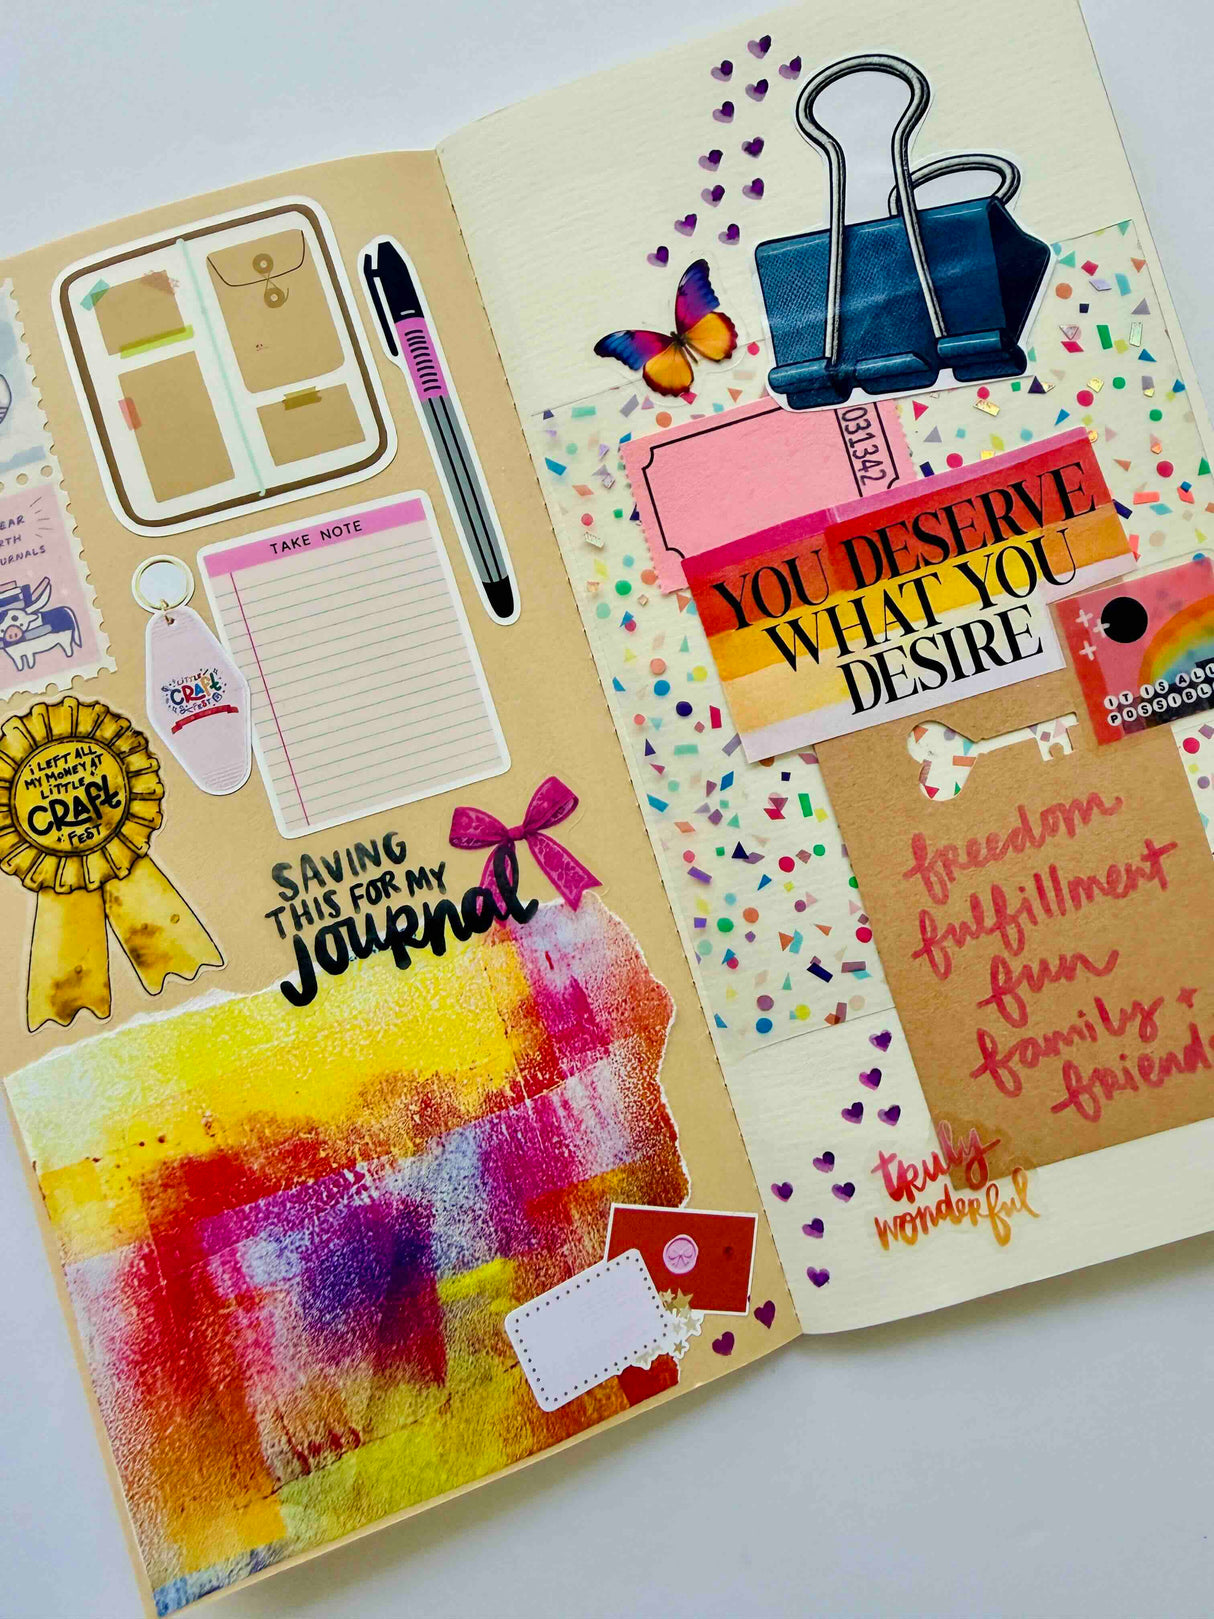 TAKE NOTE
LITTLE
CRAFT
FEST
I LEFT ALL
MY MONEY AT
LITTLE
CRAFT
FEST
SAVING
THIS FOR MY
journal
031342
YOU DESERVE
WHAT YOU
DESIRE
IT IS ALL
POSSIBLE
freedom
fulfillment
fun
family +
friends
truly
wonderful